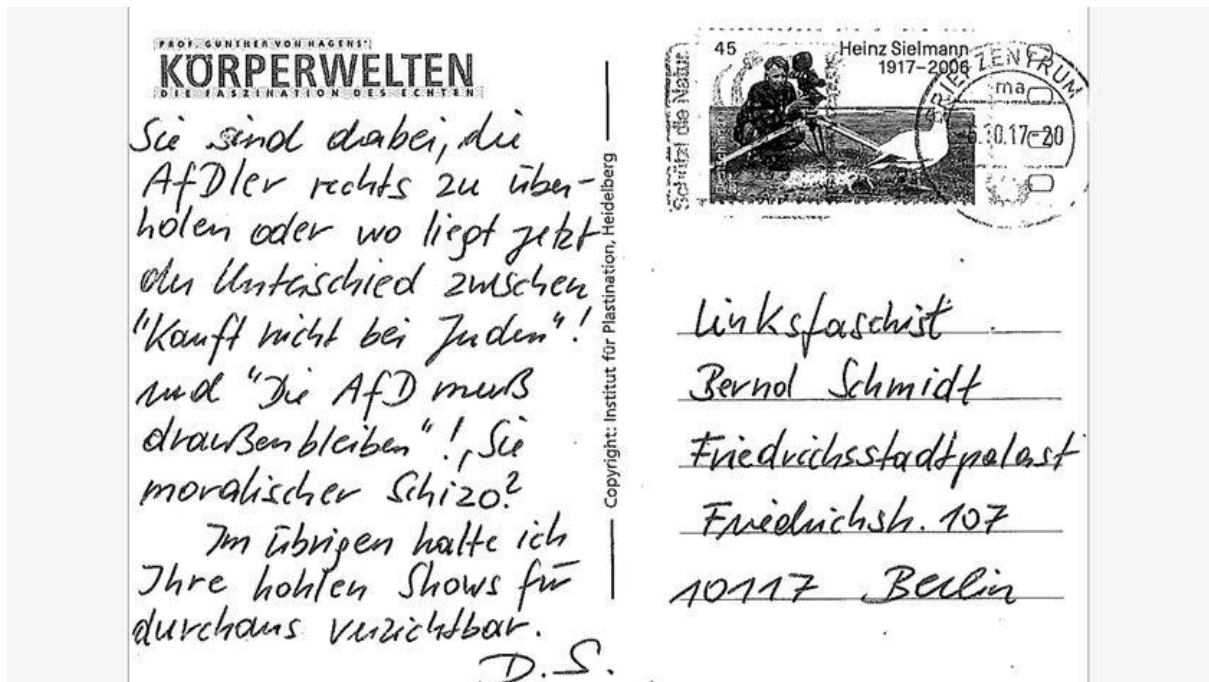 PROF. GUNTHER VON HAGENS'
KÖRPERWELTEN
DIE FASZINATION DES ECHTEN
Sie sind dabei, die
AfDler rechts zu über-
holen oder wo liegt jetzt
der Unterschied zwischen
"Kauft nicht bei Juden"!
und "Die AfD muß
draußenbleiben"!, Sie
moralischer Schizo?
Im übrigen halte ich
Ihre hohlen Shows für
durchaus verzichtbar.
D.S.
Copyright: Institut für Plastination, Heidelberg
45
Heinz Sielmann
1917–2006
Schützt die Natur
BRIEFZENTRUM
ma
6.10.17-20
Linksfaschist
Bernd Schmidt
Friedrichsstadtpalast
Friedrichstr. 107
10117 Berlin